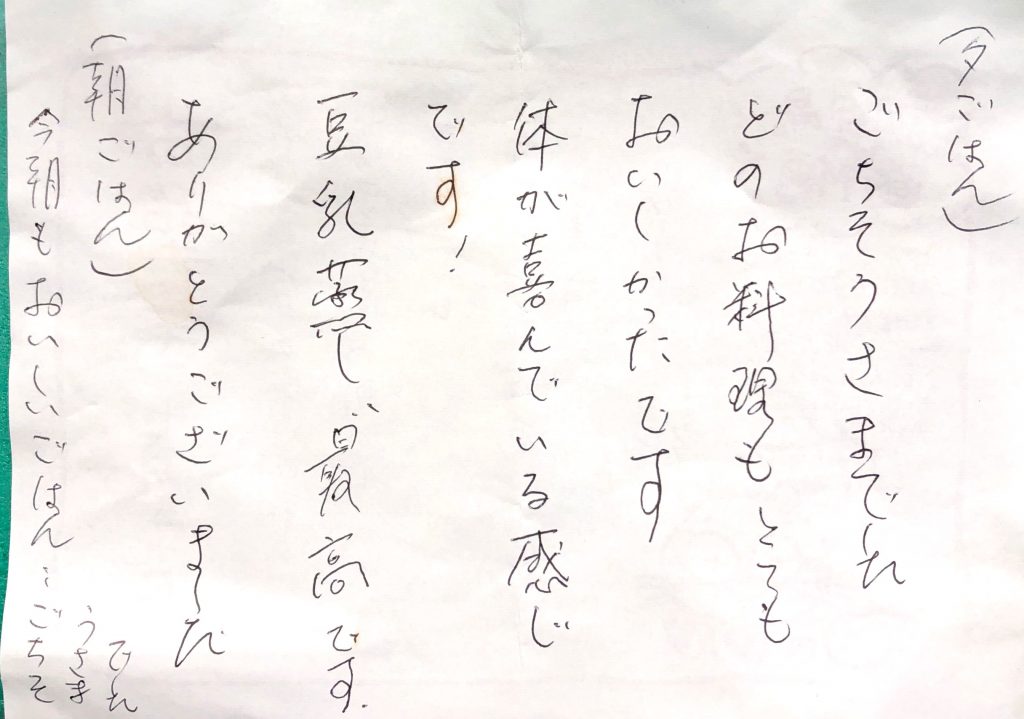 (夕ごはん)
ごちそうさまでした
どのお料理もとても
おいしかったです
体が喜んでいる感じ
です!
豆乳蒸し、最高です.
ありがとうございました
(朝ごはん)
今朝もおいしいごはん…ごちそ
うさま
でした